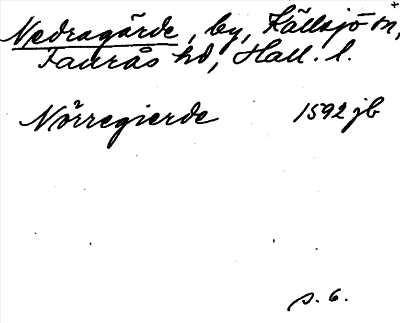 Nedragärde, by, Källsjö sn,
Faurås hd, Hall. l.
Nörregierde 1592 jb
s. 6.